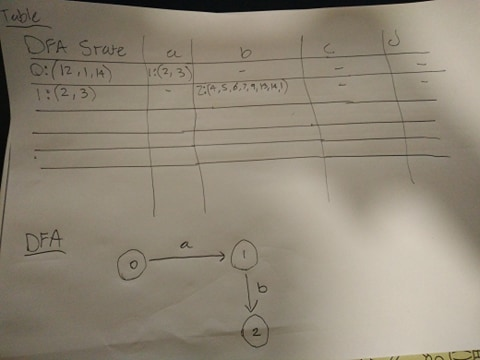 Table
DFA State a b c d
0:(12,1,14) 1:(2,3) - - -
1:(2,3) - 2:(4,5,6,7,9,13,14,1) - -
DFA
0 a 1
b
2